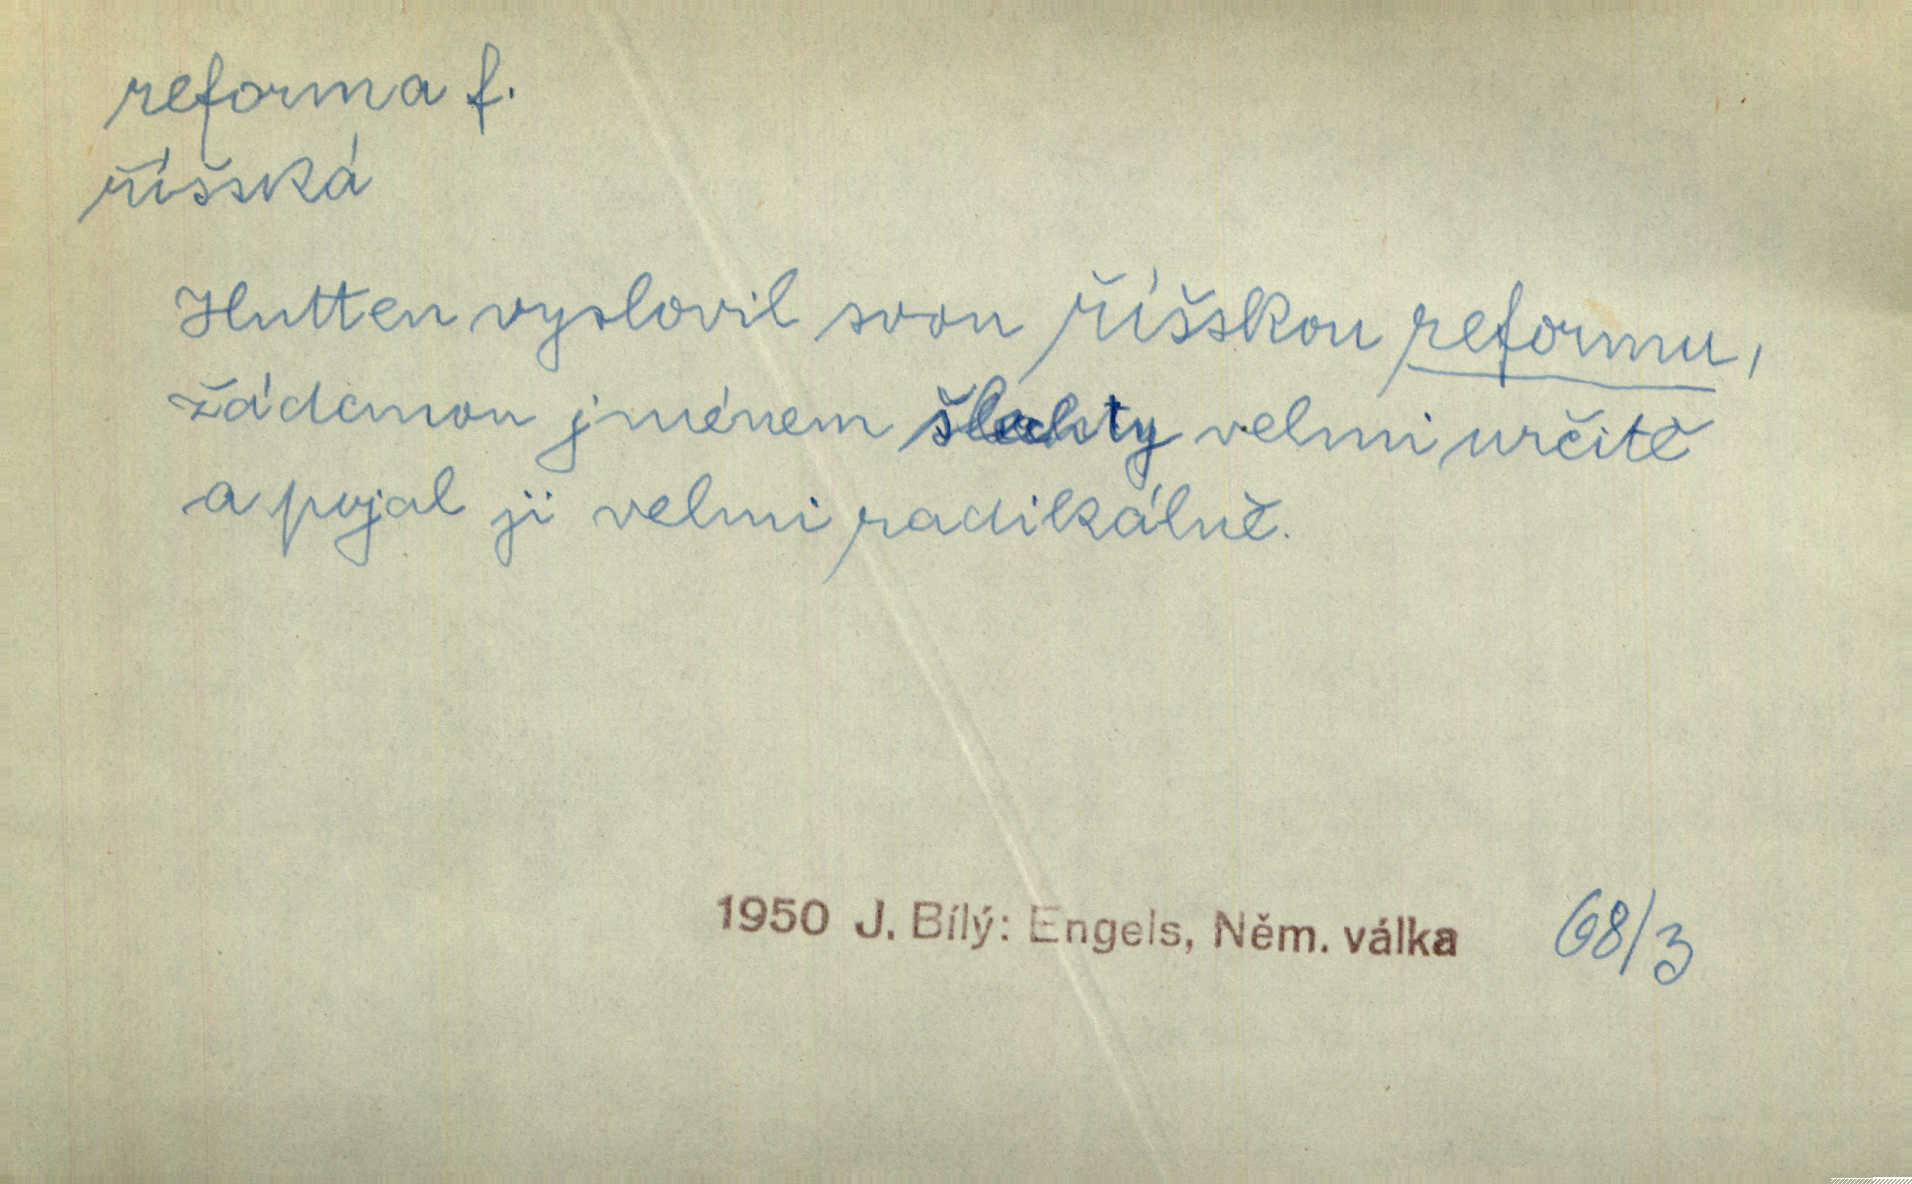 reforma f.
říšská
Hutten vyslovil svou říšskou reformu,
žádanou jménem šlechty velmi určitě
a pojal ji velmi radikálně.
1950 J. Bílý: Engels, Něm. válka 68/3